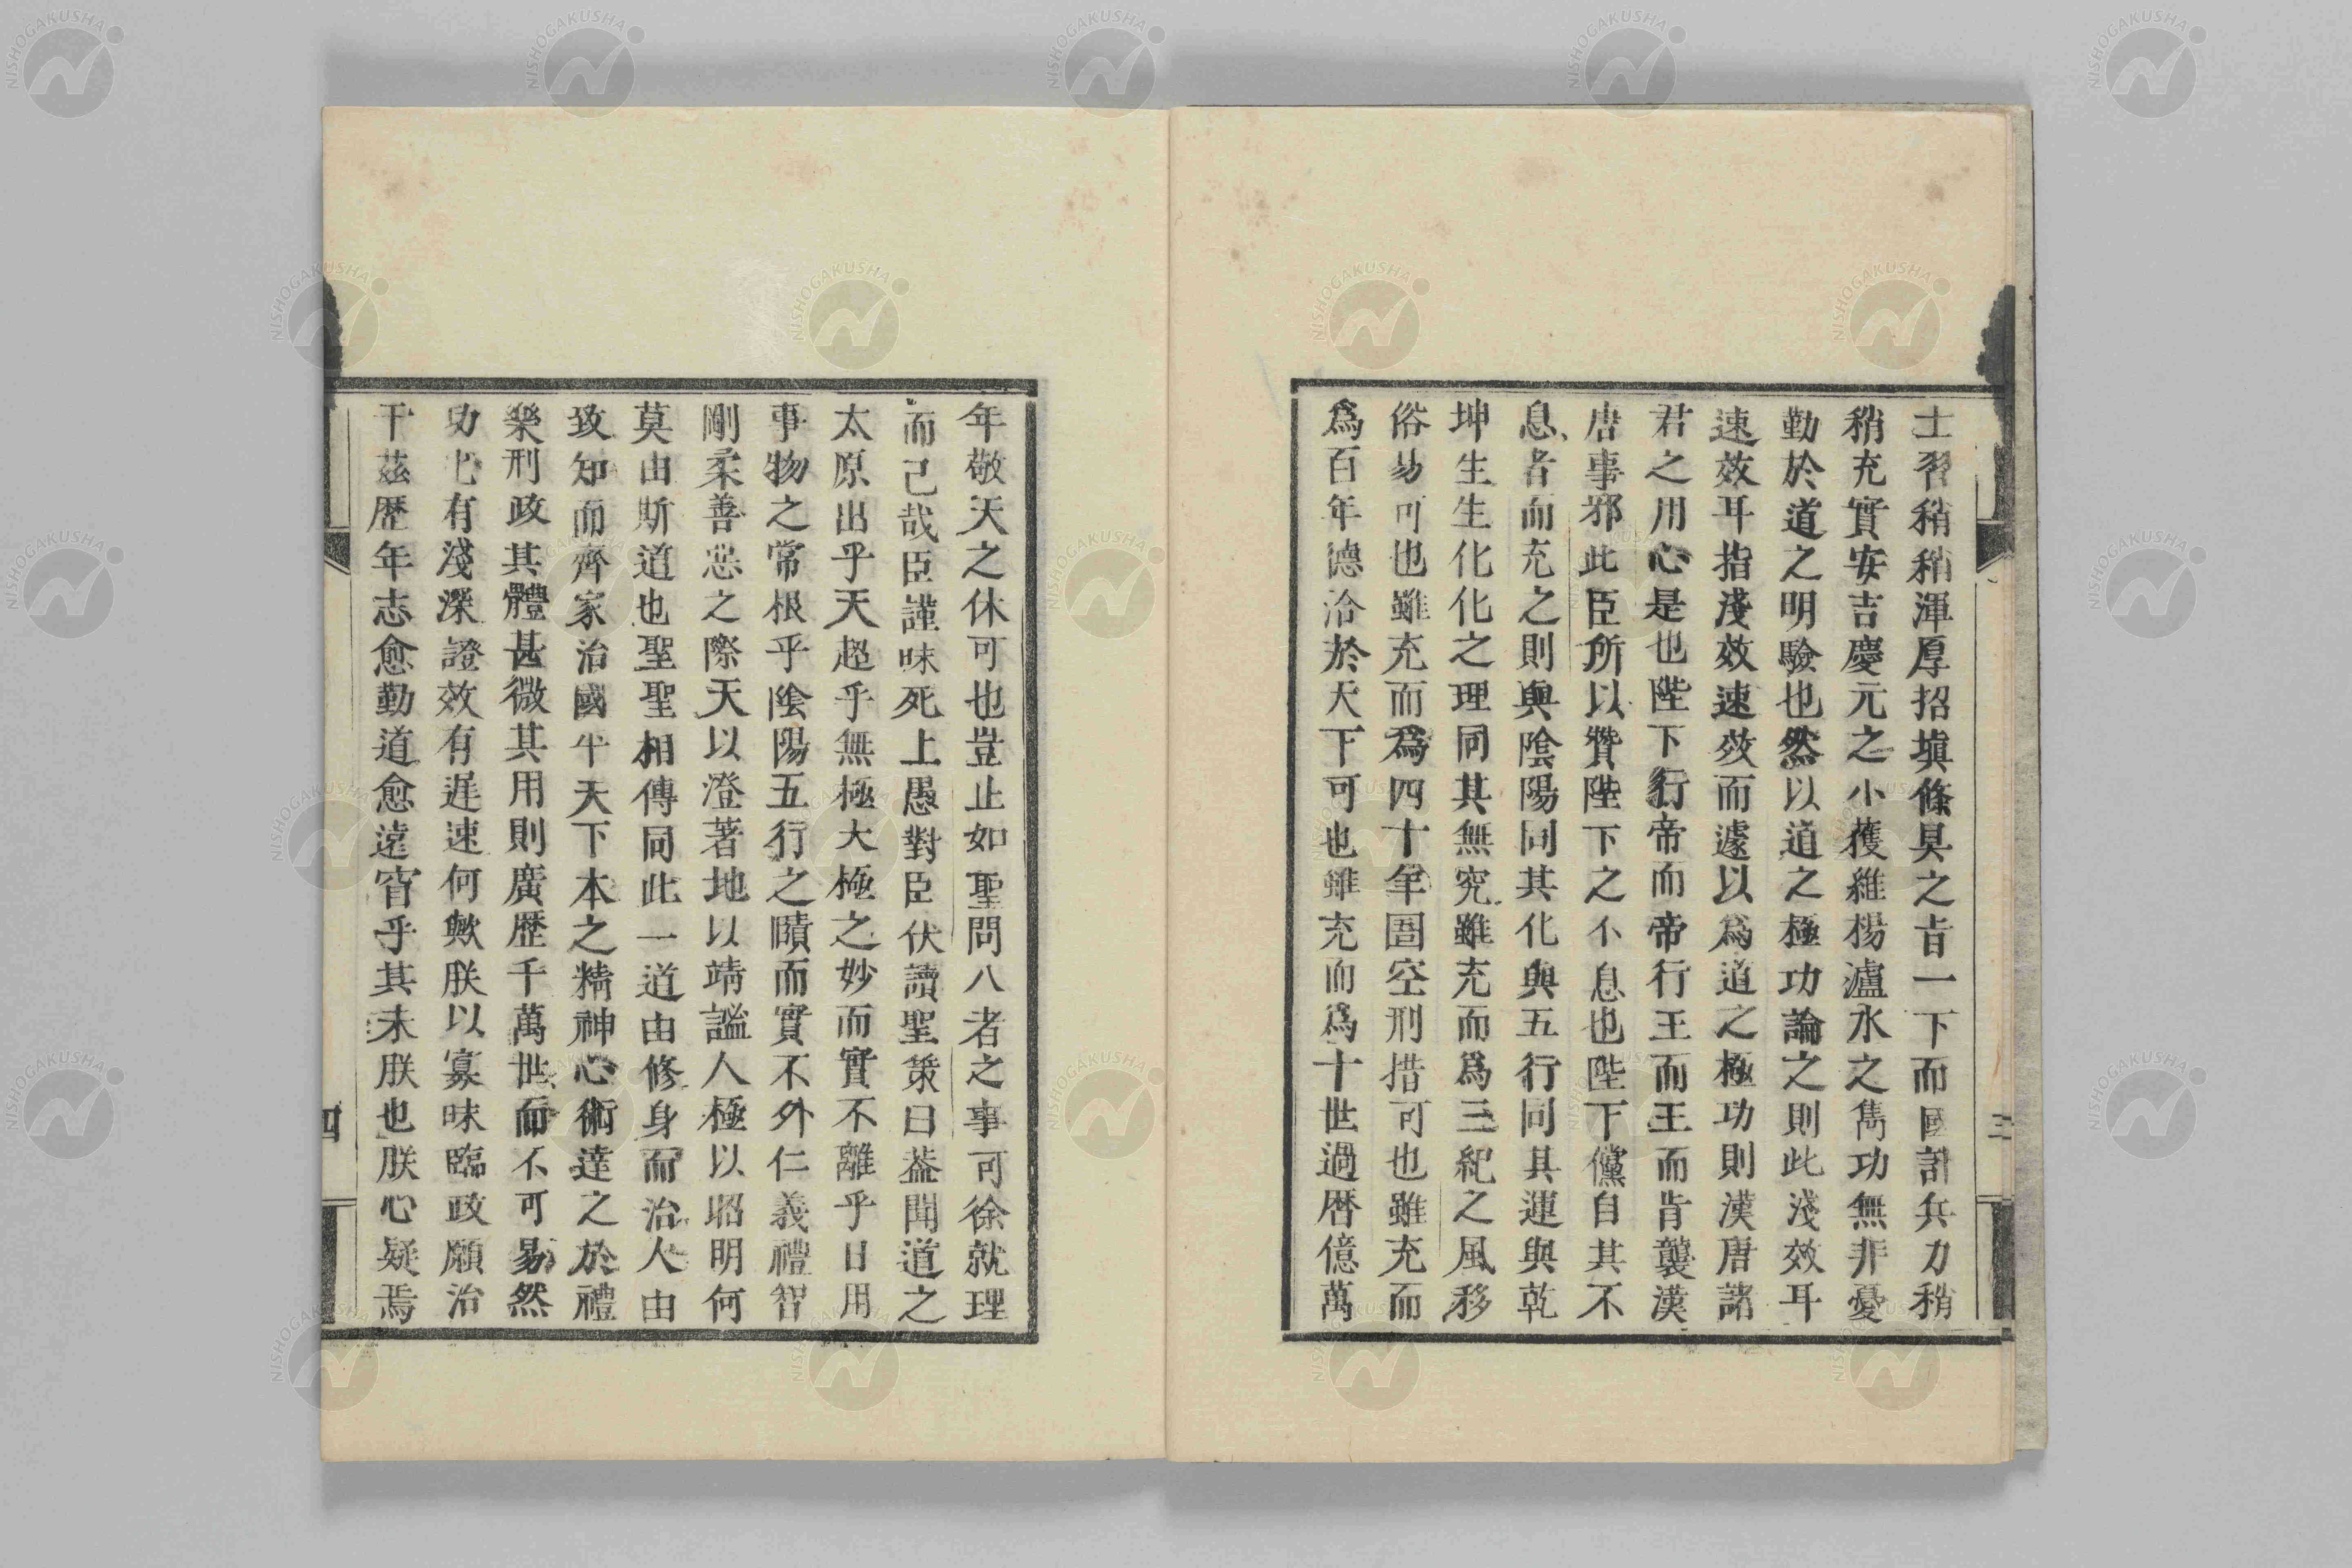 士習稍稍渾厚招塡條具之旨一下而國計兵力稍
稍充實安吉慶元之小獲維楊瀘水之雋功無非憂
勤於道之明驗也然以道之極功論之則此淺效耳
速效耳指淺效速效而遽以爲道之極功則漢唐諸
君之用心是也陛下行帝而帝行王而王而肯襲漢
唐事邪此臣所以贊陛下之不息也陛下儻自其不
息者而充之則與陰陽同其化與五行同其運與乾
坤生生化化之理同其無究雖充而爲三紀之風移
俗易可也雖充而爲四十年圄空刑措可也雖充而
爲百年德洽於天下可也雖充而爲十世過曆億萬
年敬天之休可也豈止如聖問八者之事可徐就理
而已哉臣謹昧死上愚對臣伏讀聖策曰葢聞道之
太原出乎天超乎無極大極之妙而實不離乎日用
事物之常根乎陰陽五行之賾而實不外仁義禮智
剛柔善惡之際天以澄著地以靖謐人極以昭明何
莫由斯道也聖聖相傳同此一道由修身而治人由
致知而齊家治國平天下本之精神心術達之於禮
樂刑政其體甚微其用則廣歷千萬世而不可易然
功化有淺深證效有遲速何歟朕以寡昧臨政願治
于茲歷年志愈勤道愈遠窅乎其未朕也朕心疑焉
三
四
NISHOGAKUSHA